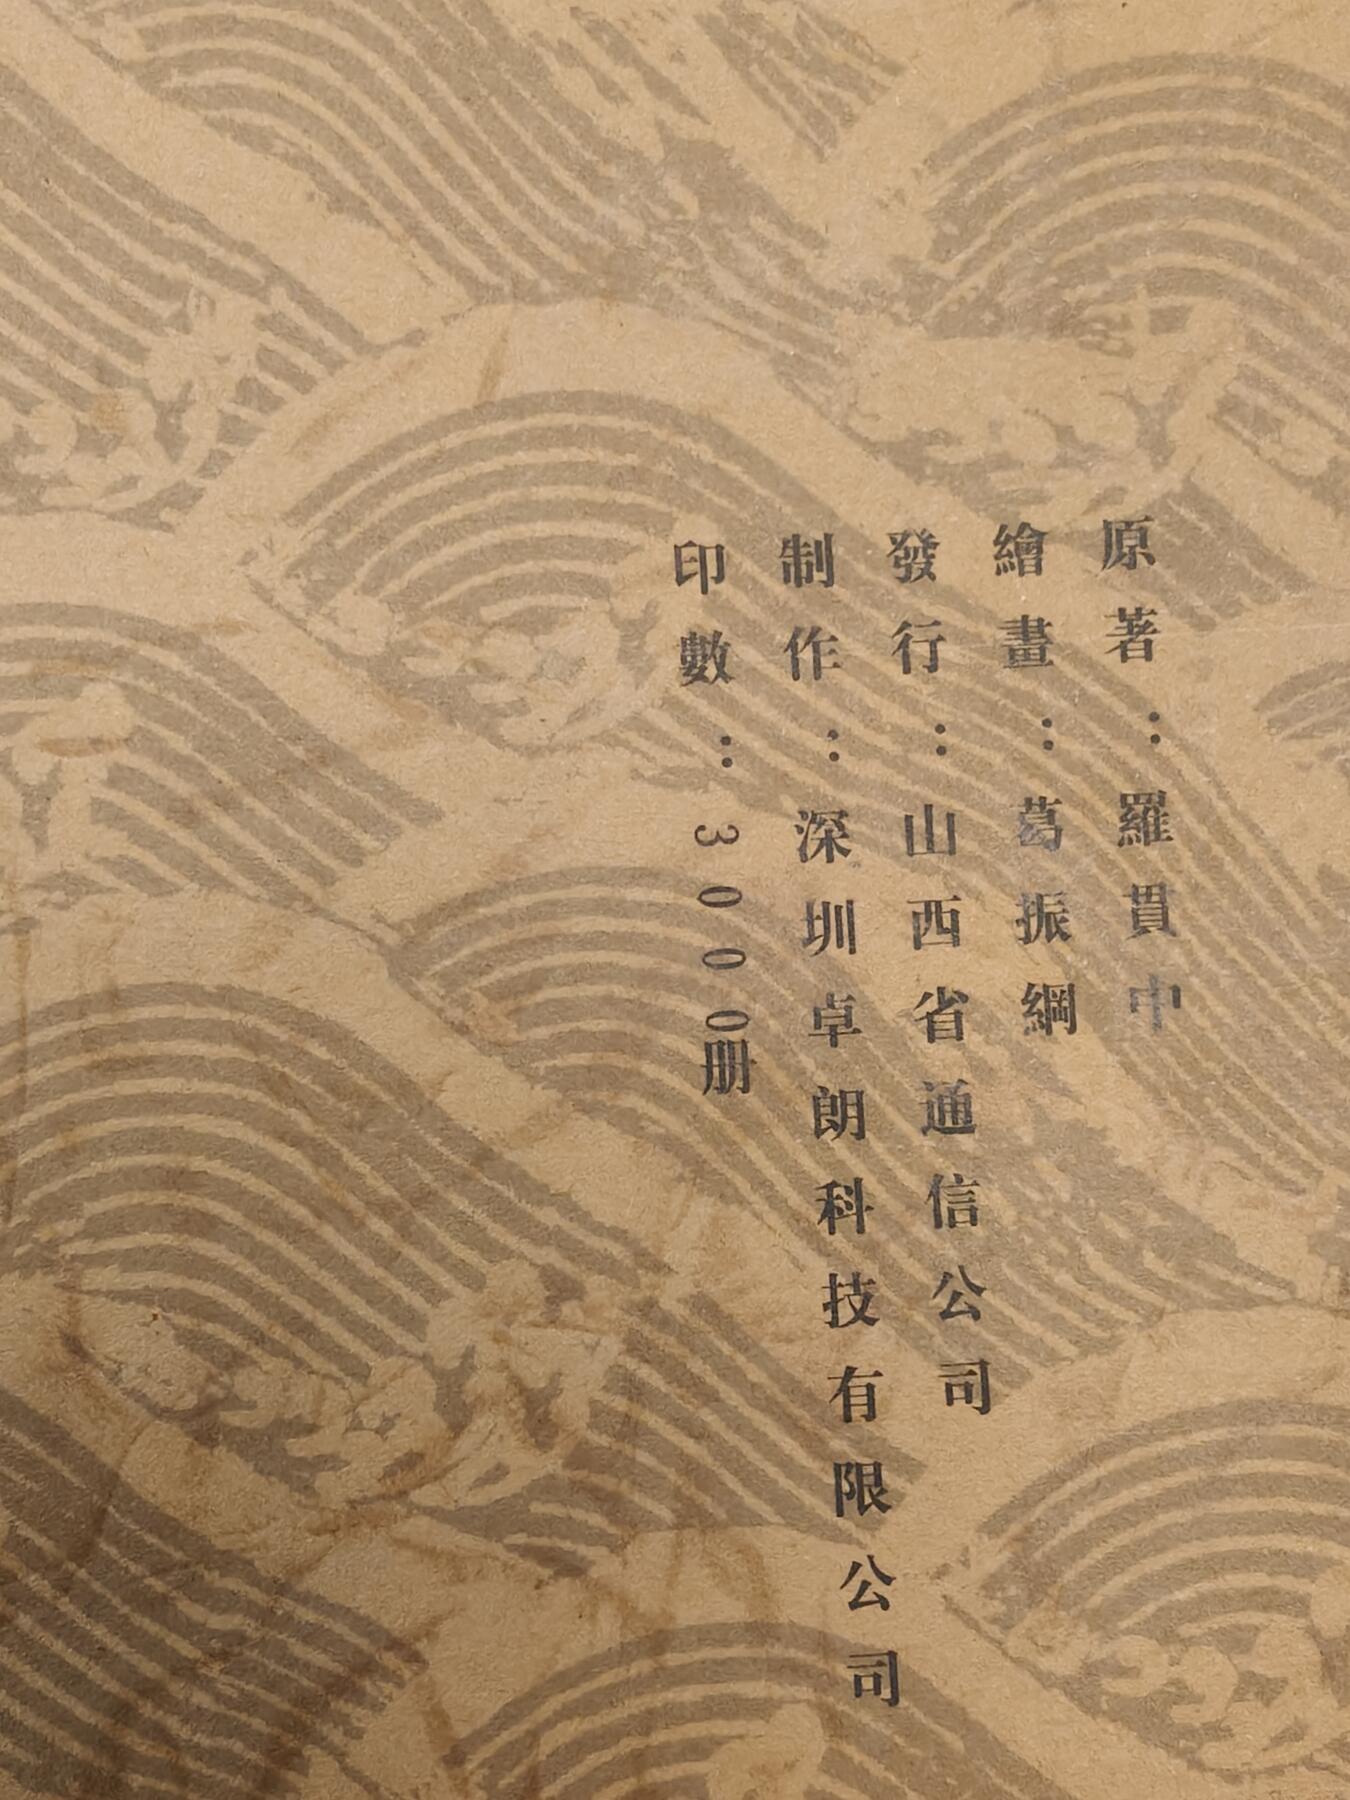 原著：羅貫中
繪畫：葛振綱
發行：山西省通信公司
制作：深圳卓朗科技有限公司
印數：3000册